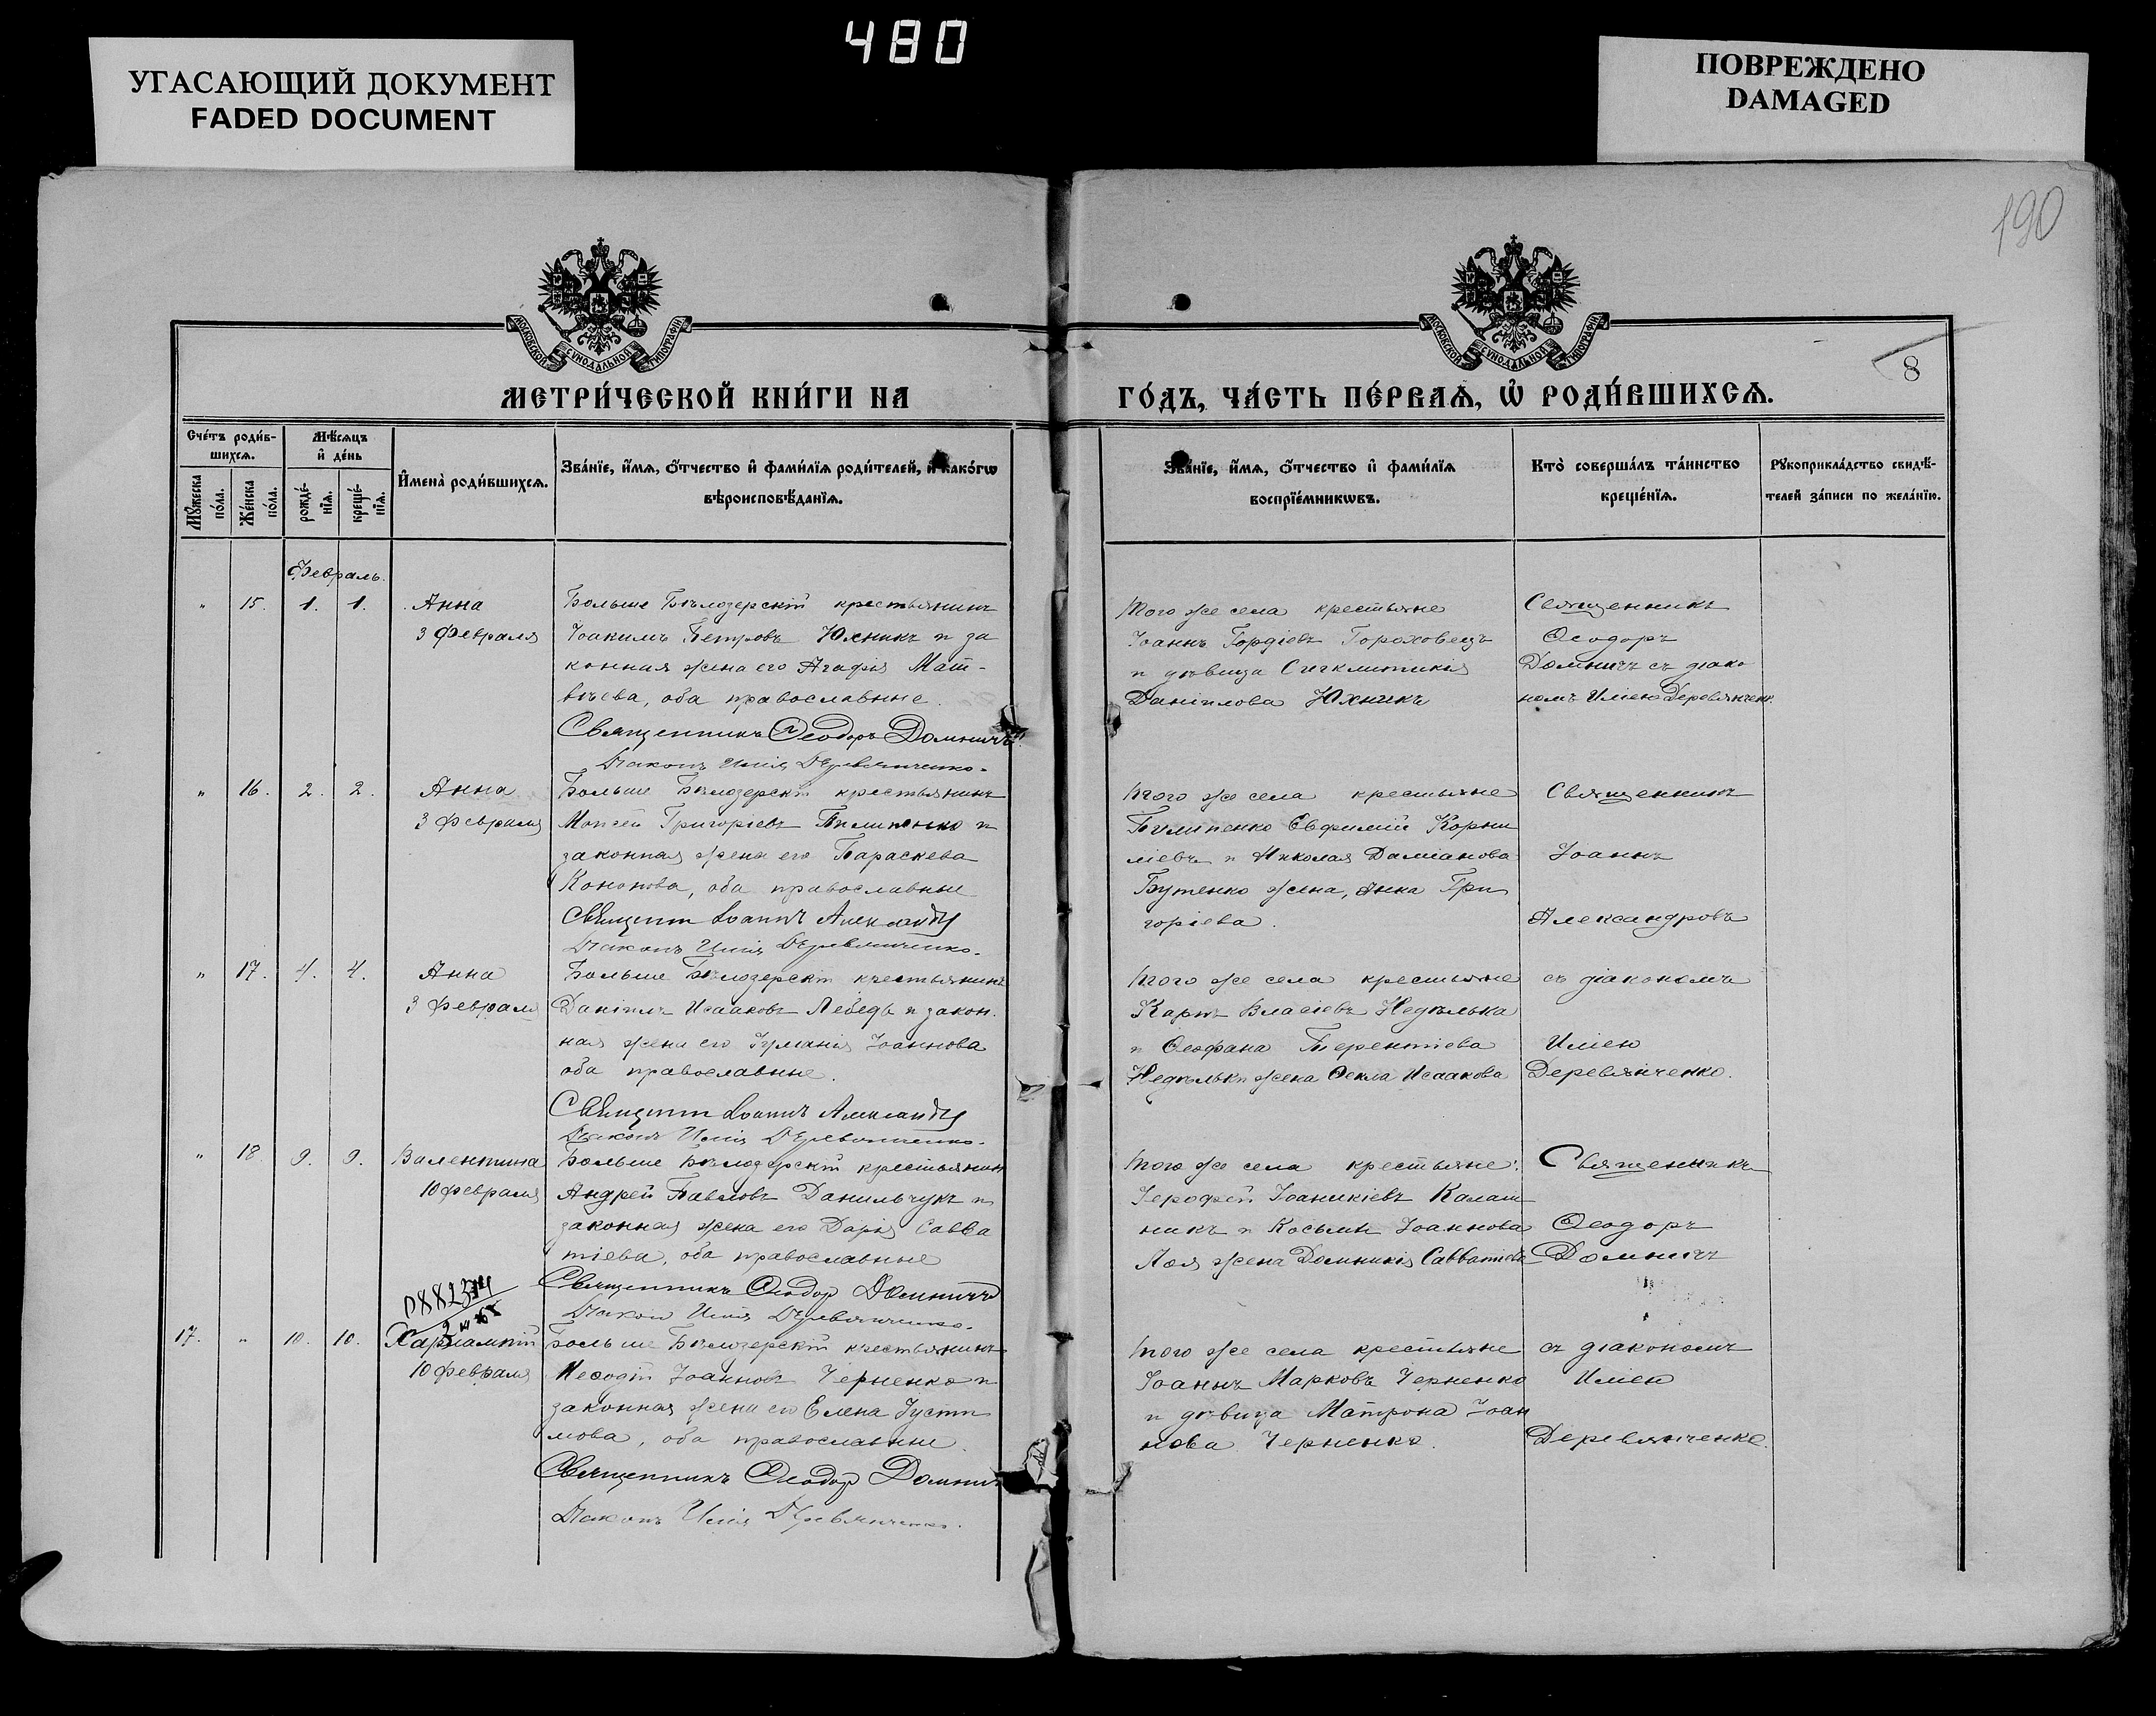 480
УГАСАЮЩИЙ ДОКУМЕНТ
FADED DOCUMENT
ПОВРЕЖДЕНО
DAMAGED
190
8
МОСКОВСКОЙ СѴНОДАЛЬНОЙ ТИПОГРАФІИ
МОСКОВСКОЙ СѴНОДАЛЬНОЙ ТИПОГРАФІИ
МЕТРИ́ЧЕСКОЙ КНИ́ГИ НА ГО́ДЪ, ЧА́СТЬ ПЕ́РВАѦ, Ѡ҆ РОДИ́ВШИХСѦ.
Сче́тъ роди́в-
шихсѧ.
Мꙋ́жеска по́ла.
Же́нска по́ла.
Мѣ́сѧцъ
и҆ де́нь
рожде́-
нїѧ.
креще́-
нїѧ.
И҆мена̀ роди́вшихсѧ.
Зва́нїе, и҆́мѧ, ѻ҆́тчество и҆ фами́лїѧ роди́телей, и҆ како́гѡ
вѣроисповѣ́данїѧ.
Зва́нїе, и҆́мѧ, ѻ҆́тчество и҆ фами́лїѧ
воспрїе́мникѡвъ.
Кто̀ соверша́лъ та́инство
креще́нїѧ.
Рꙋкоприкла́дство свидѣ́-
телей за́писи по жела́нїю.
Февраль.
" 15. 1. 1. Анна
3 февраля
Больше Бѣлозерскій крестьянинъ
Іоакимъ Петровъ Юхникъ и за
конная жена его Агафія Мат-
вѣева, оба православные.
Священникъ Ѳеодоръ Домничъ
Діаконъ Деревянченко.
Того же села крестьяне
Іоаннъ Гордіевъ Гороховецъ
и дѣвица Сигклитикія
Даніилова Юхникъ
Священникъ
Ѳеодоръ
Домничъ съ діако
номъ Деревянченк.
" 16. 2. 2. Анна
3 февраля
Больше Бѣлозерскій крестьянинъ
Моисей Григоріевъ Пилипенко и
законная жена его Параскева
Кононова, оба православные
Священникъ Іоаннъ Александровъ
Діаконъ Деревянченко.
Того же села крестьяне
Пилипенко Евфимій Корни
ліевъ и Николая Даміанова
Бутенко жена, Анна Гри
горіева.
Священникъ
Іоаннъ
Александровъ
" 17. 4. 4. Анна
3 февраля
Больше Бѣлозерскій крестьянинъ
Даніилъ Исааковъ Лебедь и закон.
ная жена его Іуліанія Іоаннова
оба православные.
Священникъ Іоаннъ Александровъ
Діаконъ Деревянченко.
Того же села крестьяне
Карпъ Власіевъ Недѣлька
и Ѳеофана Терентіева
Недѣльки жена Ѳекла Исаакова
съ діакономъ
Деревянченко.
" 18 9. 9. Валентина
10 февраля
Больше Бѣлозерскій крестьянин
Андрей Павловъ Данильчукъ и
законная жена его Дарія Савва
тіева, оба православные
Священникъ Ѳеодоръ Домничъ
Діаконъ Деревянченко.
Того же села крестьяне:
Іерофей Іоаникіевъ Калаш
никъ и Косьмы Іоаннова
Лоя жена Домникія Савватіева
Священникъ
Ѳеодоръ
Домничъ
17. " 10. 10. Харлампій
10 февраля
Больше Бѣлозерскій крестьянинъ
Меѳодій Іоанновъ Черненко и
законная жена его Елена Іусти
мова, оба православные.
Священникъ Ѳеодоръ Домничъ
Діаконъ Деревянченко.
Того же села крестьяне
Іоаннъ Марковъ Черненко
и дѣвица Матрона Іоан
нова Черненко.
съ діакономъ
Деревянченко.